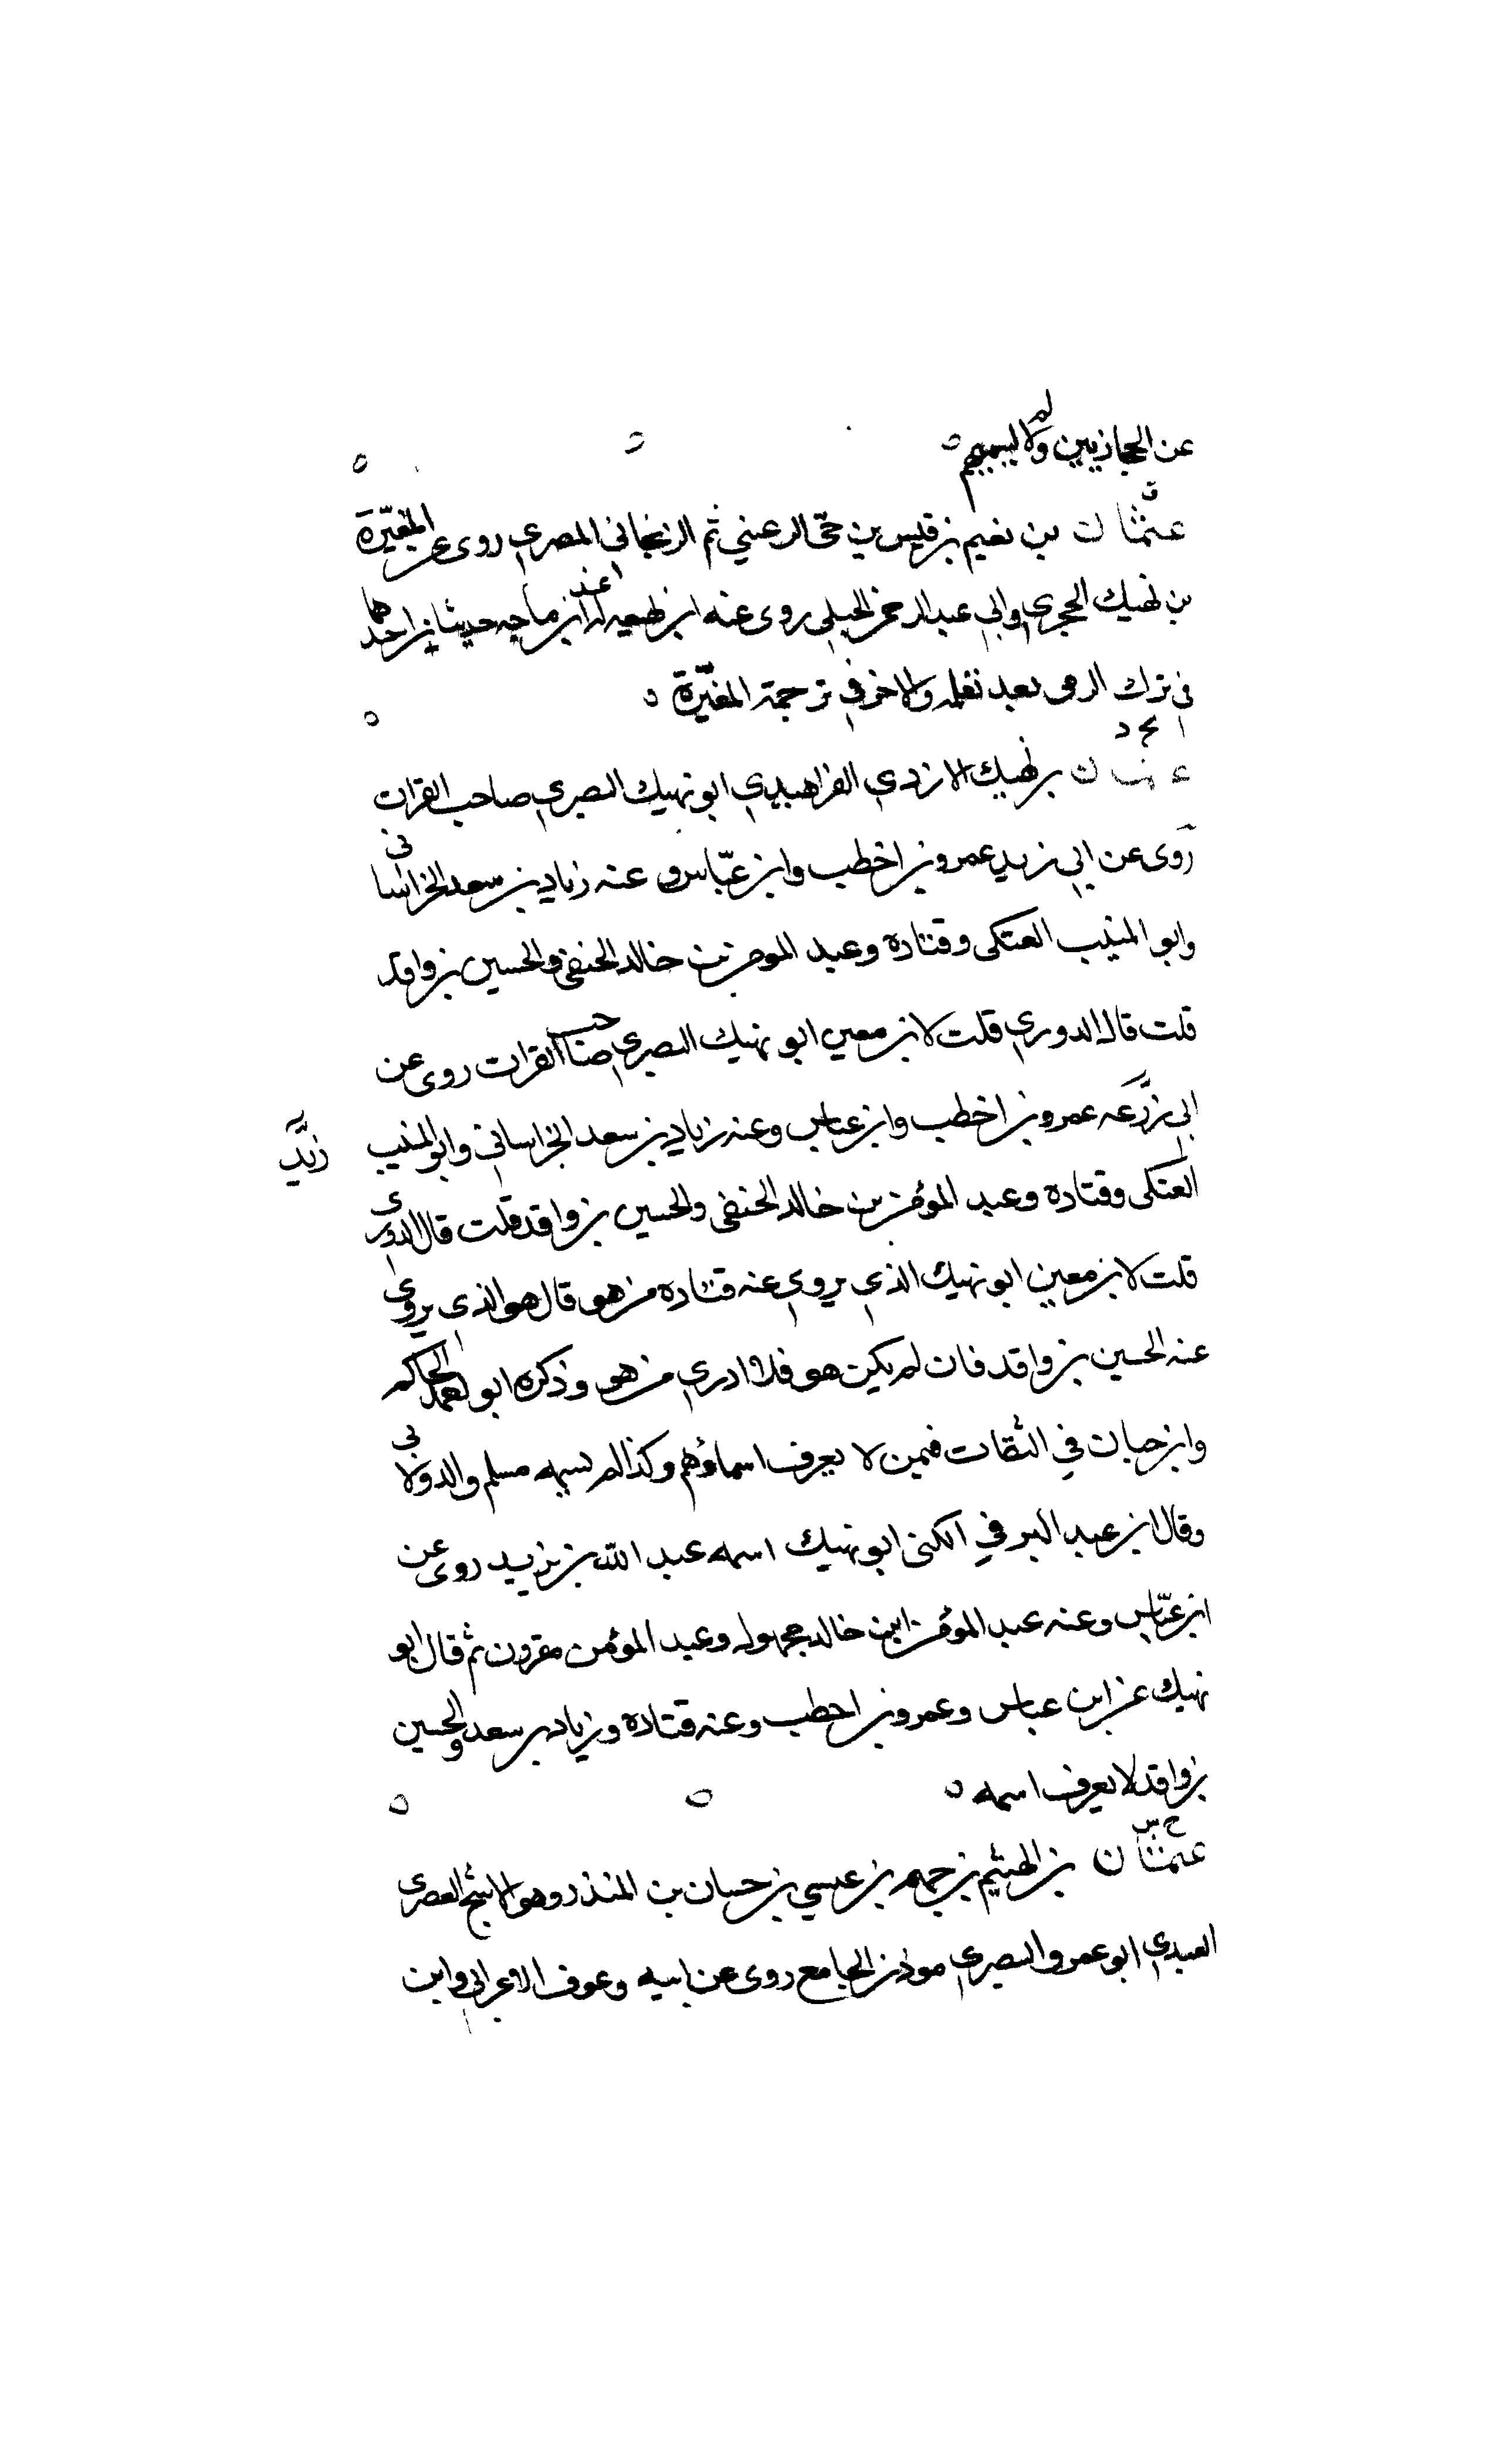 عن الحجازيين ولم يسمهم
ق
عثمان بن نعيم بن قيس بن حي الرعيني ثم الزنجاني المصري روى عن المغيرة
بن نهيك الحجري وابي عبد الرحمن الحبلي روى عنه ابن لهيعه له عند ابن ماجه حديثان احدهما
في ترك الرمي بعد تعلمه والاخر في ترجمة المغيرة
عثمان بن نهيك الازدي الفراهيدي ابو نهيك البصري صاحب القرات
روى عن ابي زيد عمرو بن اخطب وابن عباس وعنه زياد بن سعد الخراساني
وابو المنيب العتكي وقتادة وعبد المومن بن خالد الحنفي والحسين بن واقد
قلت قال الدوري قلت لابن معين ابو نهيك البصري صاحب القرات روى عن
ابي زرعه عمرو بن اخطب وابن عباس وعنه زياد بن سعد الخراساني وابو المنيب
زيد
العتكي وقتاده وعبد المؤمن بن خالد الحنفي والحسين بن واقد قلت قال الدوري
قلت لابن معين ابو نهيك الذي يروي عنه قتاده من هو قال هو الذي يروي
عنه الحسين بن واقد فان لم يكن هو فلا ادري من هو وذكره ابو احمد الحاكم
وابن حبان في الثقات فيمن لا يعرف اسماؤهم وكذا لم يسمه مسلم والدولابي
وقال ابن عبد البر في الكنى ابو نهيك اسمه عبد الله بن يزيد روى عن
ابن عباس وعنه عبد المؤمن ابن خالد مجهول وعبد المؤمن مقرون ثم قال ابو
نهيك عن ابن عباس وعمرو بن احطب وعنه قتادة وزياد بن سعد والحسين
بن واقد لا يعرف اسمه
خ س
عثمان بن الهيثم بن جهم بن عيسي بن حسان بن المنذر وهو الاشج العصري
العبدي ابو عمرو البصري موذن الجامع روى عن ابيه وعوف الاعرابي وابن